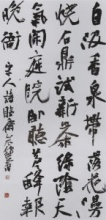 自汲香泉帶落花漫
燒石鼎試新茶綠陰天
氣閒庭院臥聽黃蜂報
晚衙